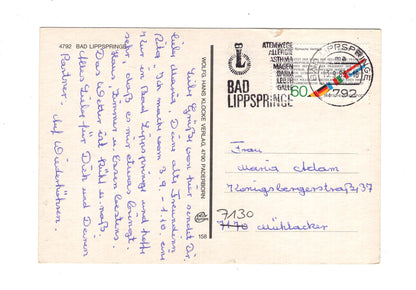 4792 BAD LIPPSPRINGE
Liebe Grüße von hier sendet Dir,
liebe Maria, Deine alte Freundin
Rita. Ich mache vom 3.9.-1.10. eine
Kur in Bad Lippspringe und hoffe
sehr, daß es mir etwas bringt.
Haus, Zimmer u. Essen bestens.
Das Wetter ist kühl u. naß.
Alles Liebe für Dich und Deinen
Partner. Auf Wiederhören
WOLFG. HANS KLOCKE VERLAG, 4790 PADERBORN
158
ATEMWEGE
ALLERGIE
ASTHMA
MAGEN
DARM
LEBER
GALLE
BAD
LIPPSPRINGE
60
4792
Frau
Maria Adam
Königsbergerstraße 37
7130
Mühlacker